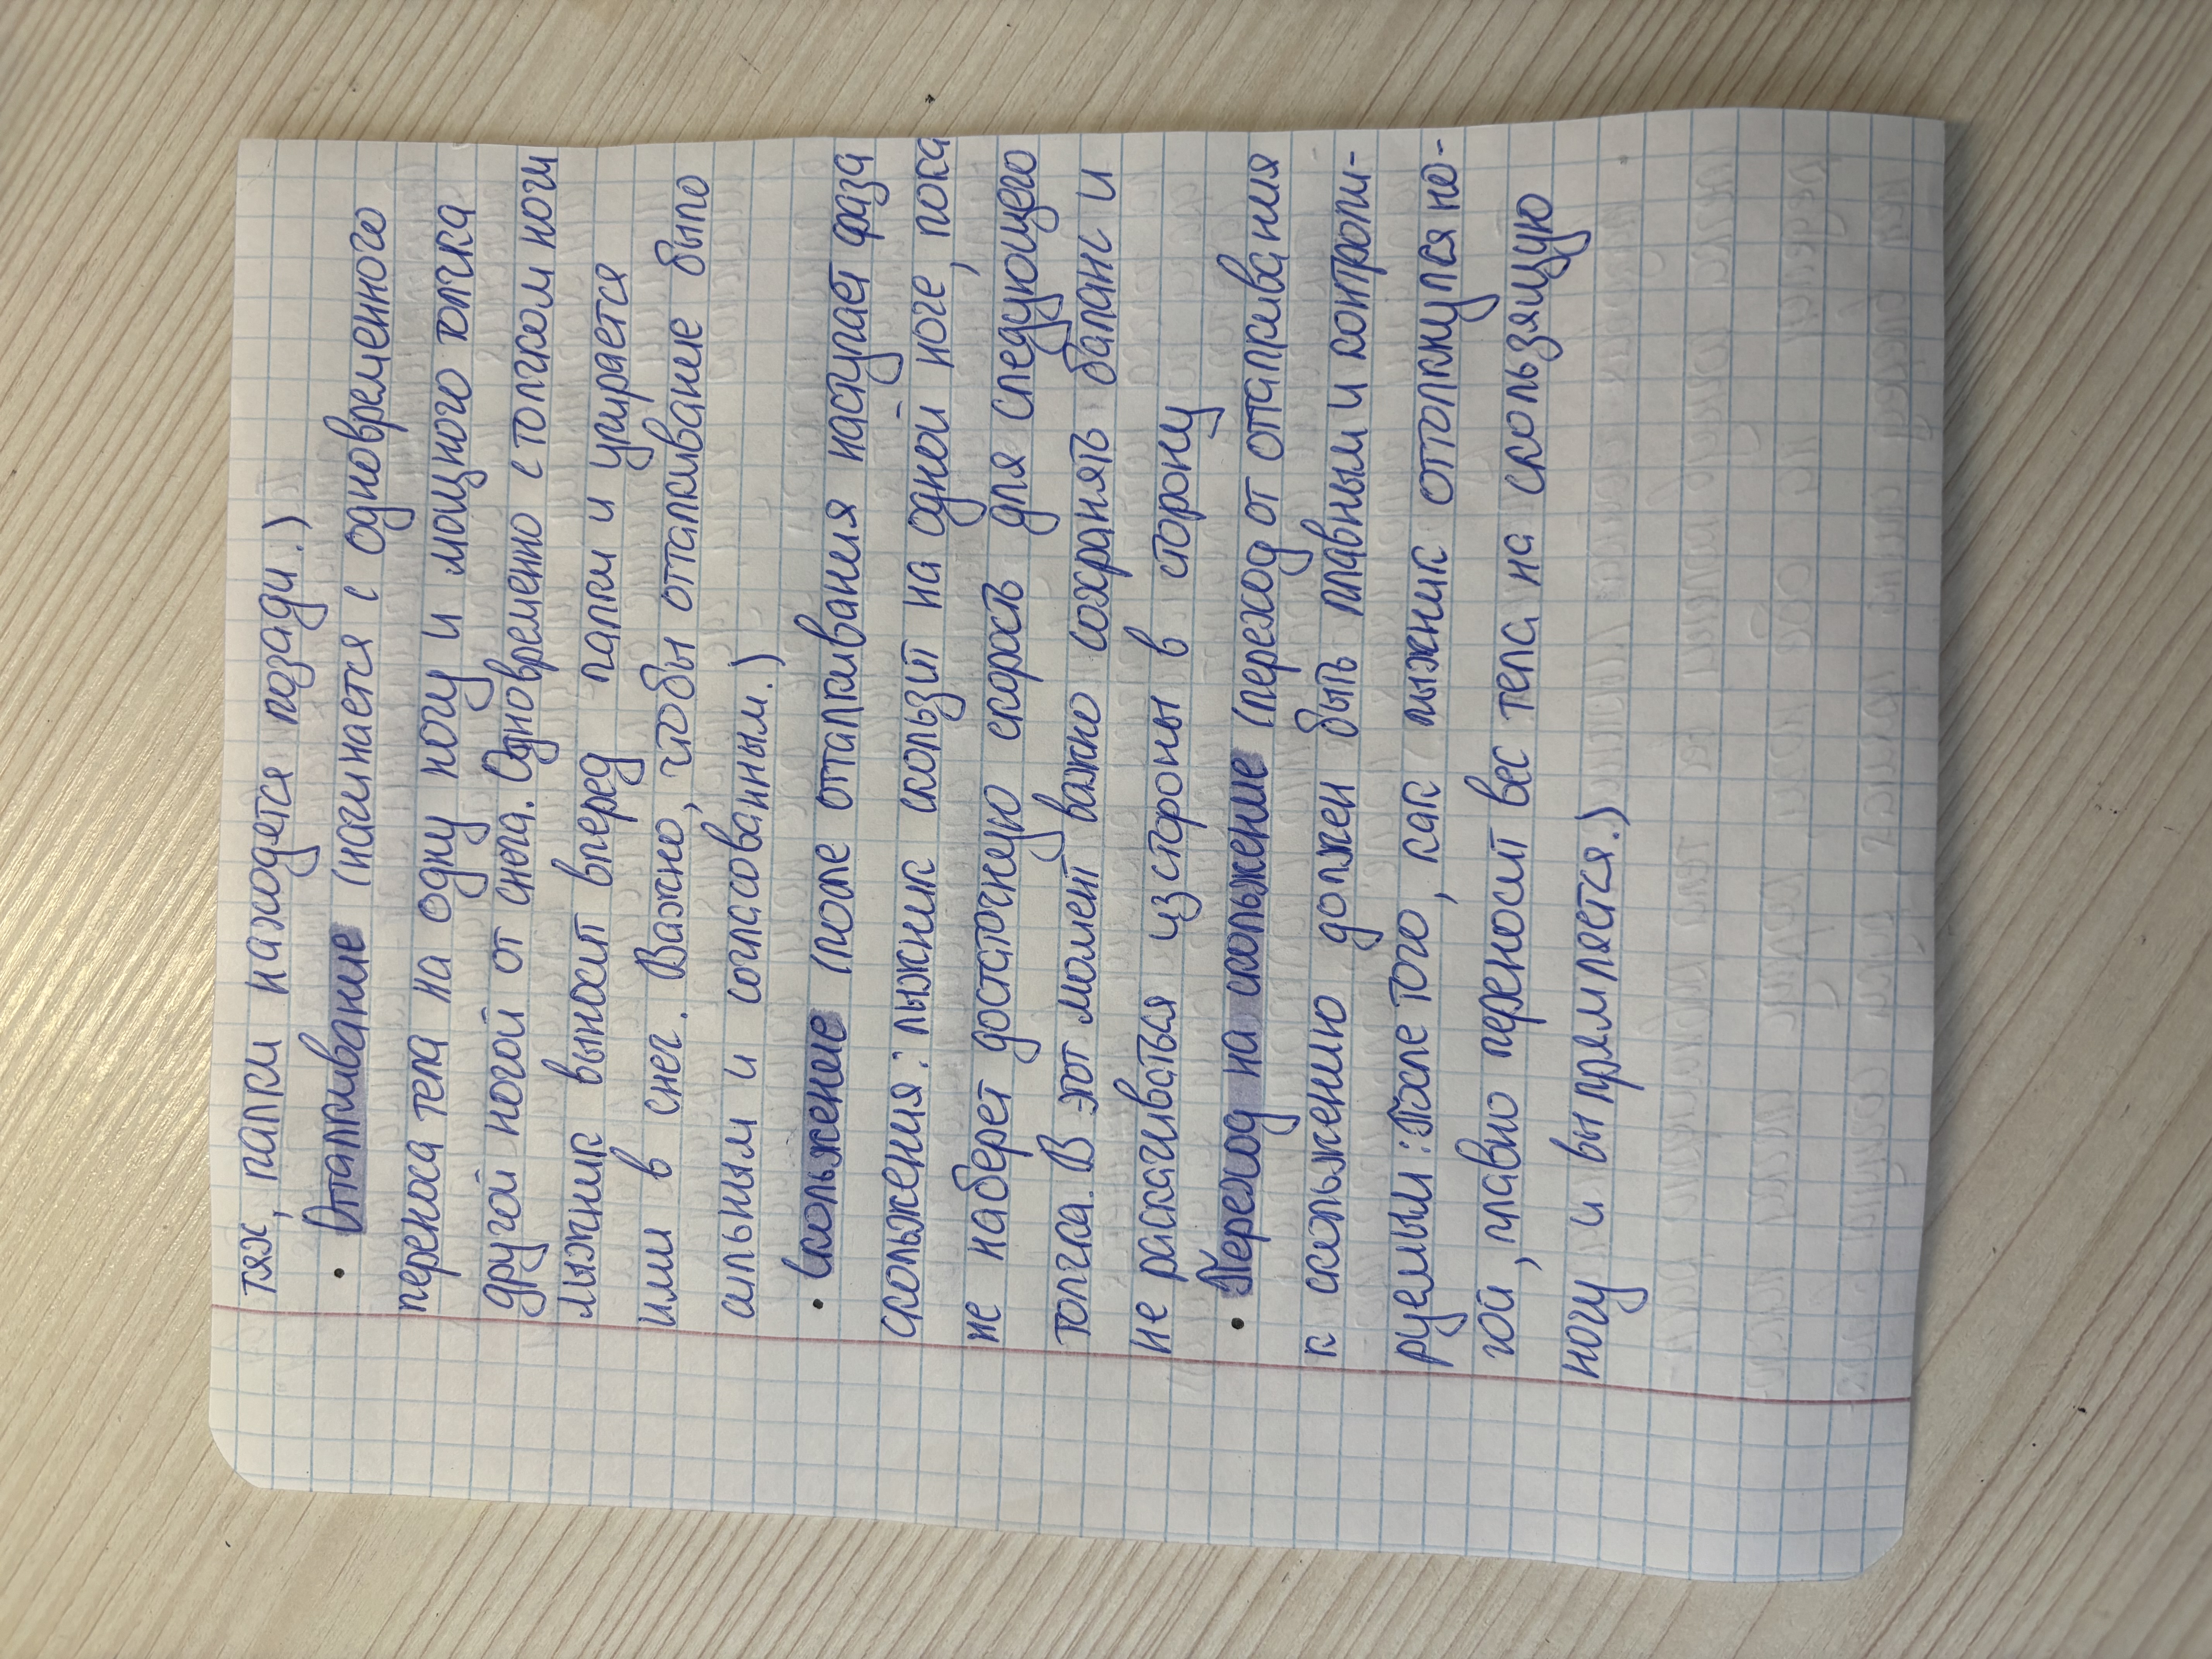 тях, палки находятся позади.)
• Отталкивание (начинается с одновременного
переноса тела на одну ногу и мощного толчка
другой ногой от снега. Одновременно с толчком ноги
лыжник выносит вперед палки и упирается
ими в снег. Важно, чтобы отталкивание было
сильным и согласованным.)
• Скольжение (после отталкивания наступает фаза
скольжения: лыжник скользит на одной ноге, пока
не наберет достаточную скорость для следующего
толчка. В этот момент важно сохранять баланс и
не раскачиваться из стороны в сторону
• Переход на скольжение (переход от отталкивания
к скольжению должен быть плавным и контроли-
руемым: После того, как лыжник оттолкнулся но-
гой, плавно переносит вес тела на скользящую
ногу и выпрямляется.)